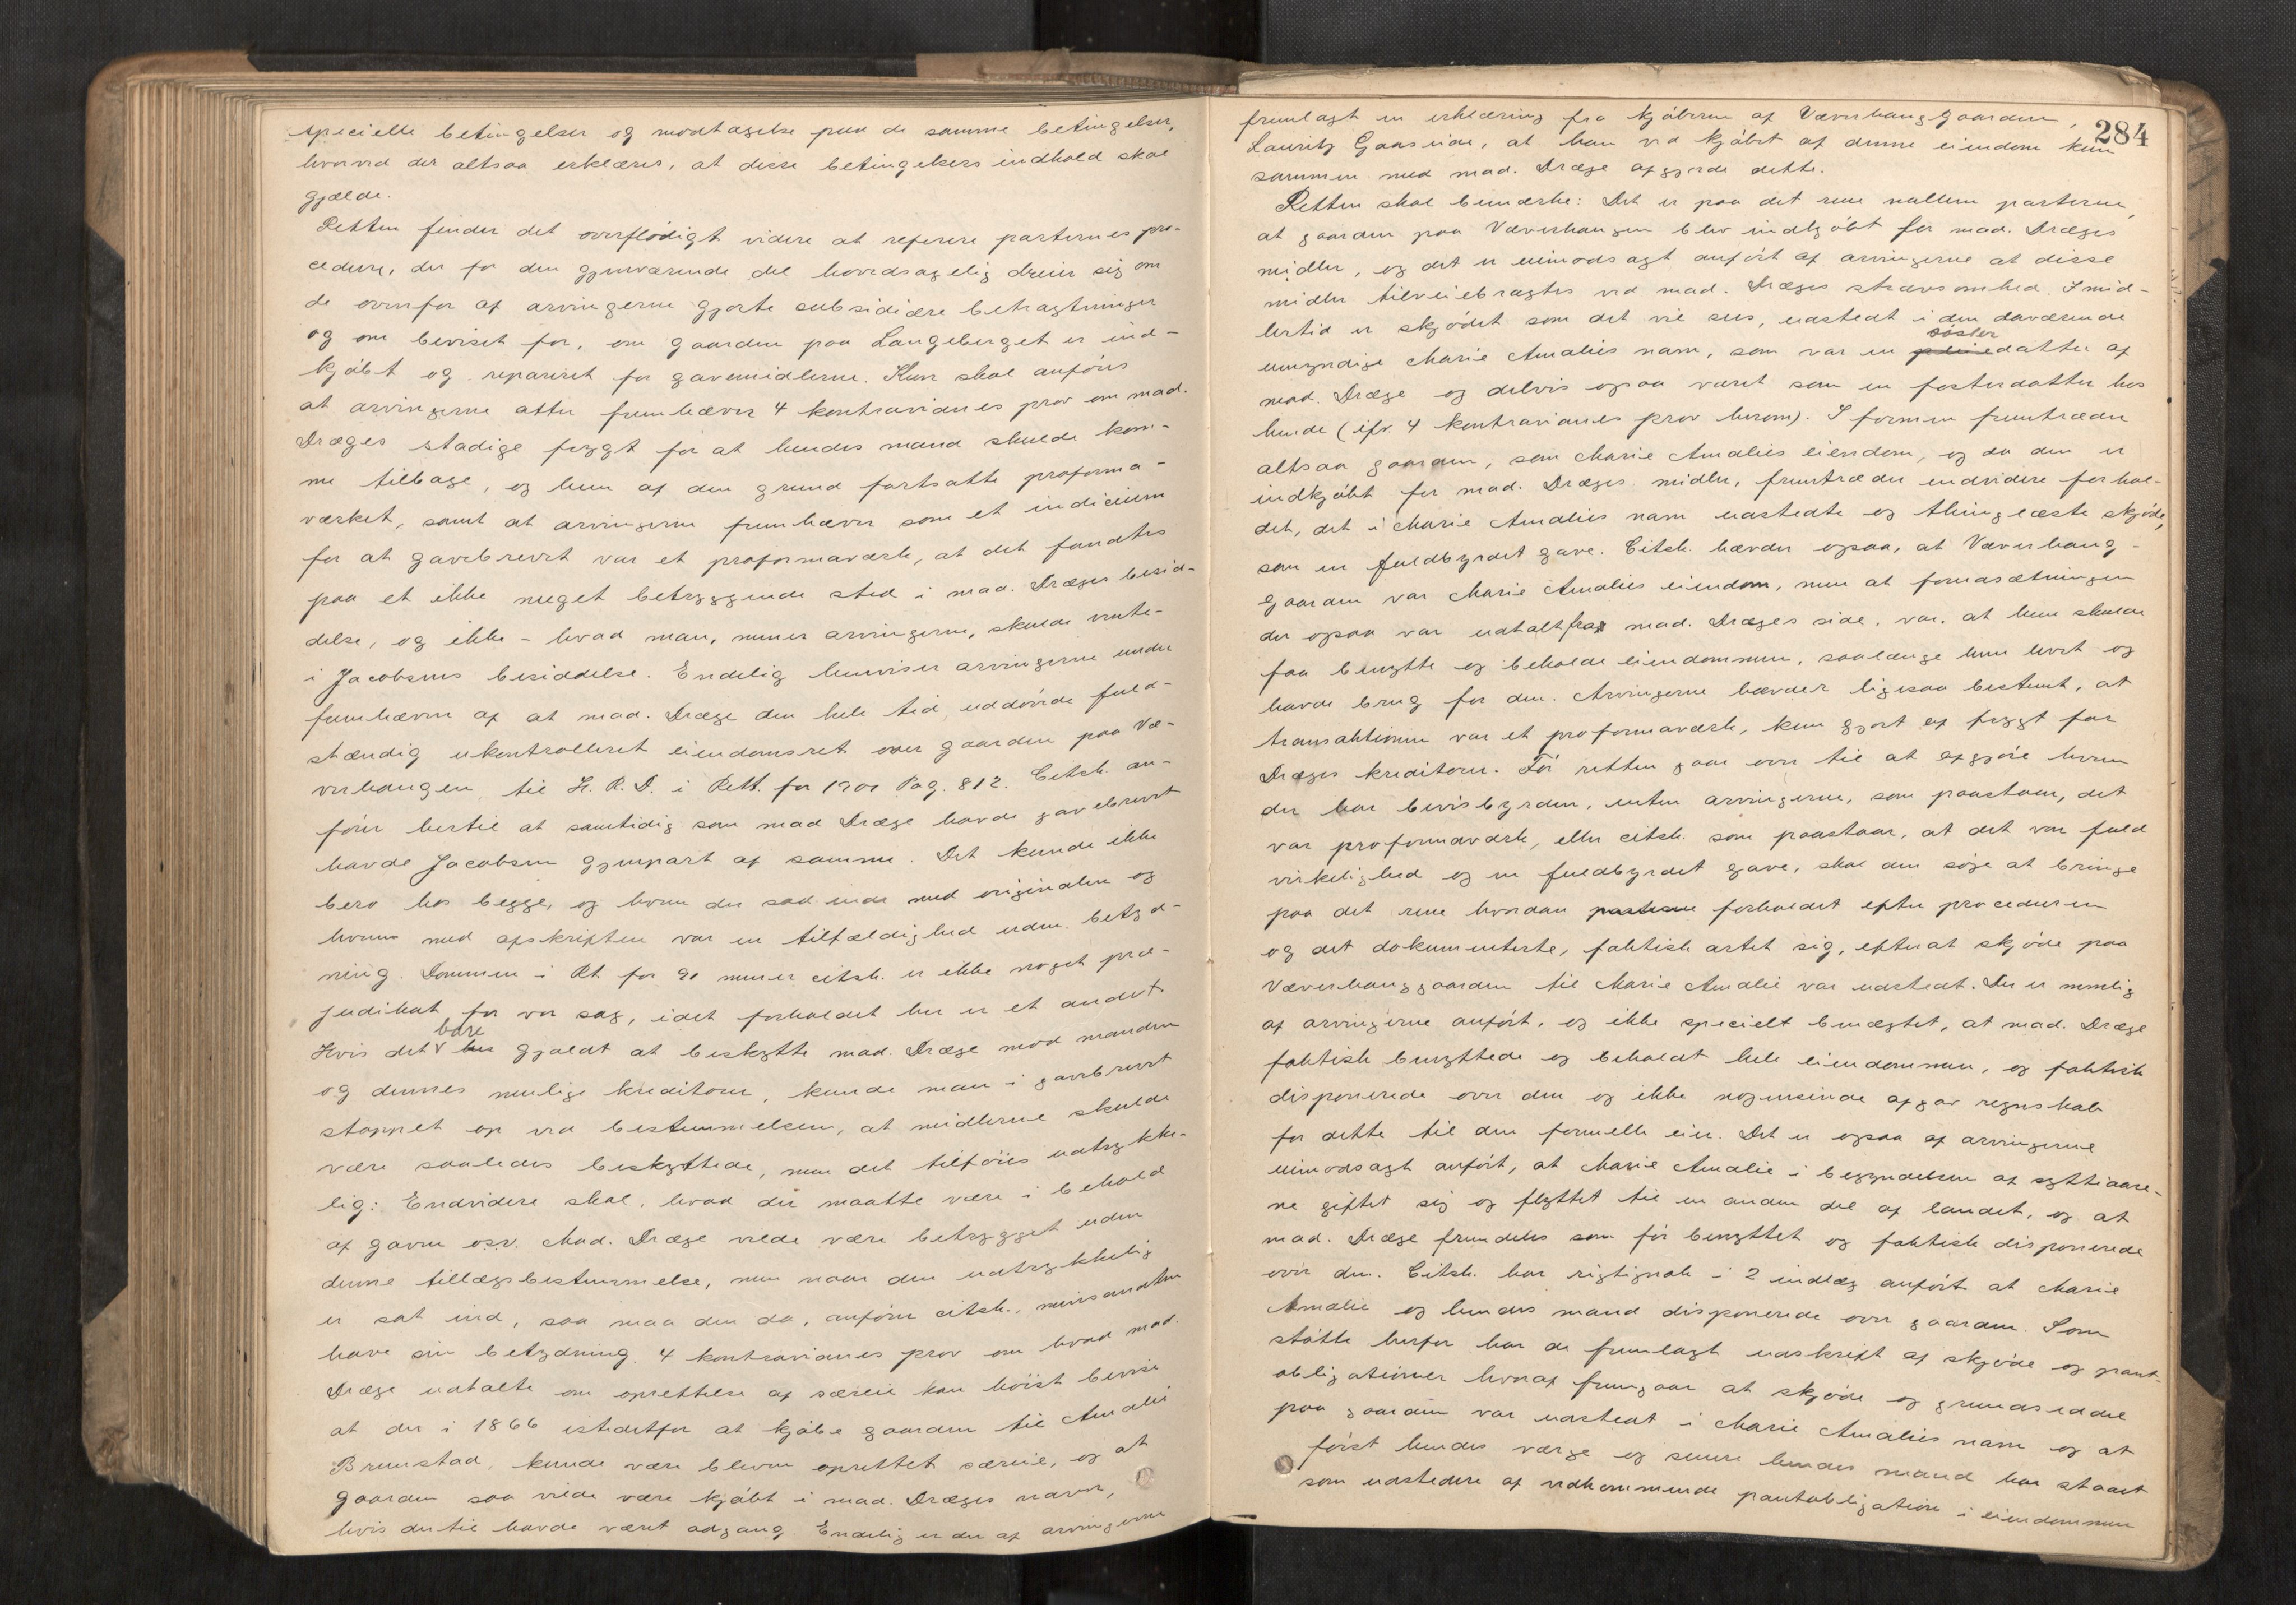 specielle betingelser og modtagelse paa de samme betingelser,
hvorved der altsaa erklæres, at disse betingelsers indhold skal
gjælde.
Retten finder det overflødigt videre at referere parternes pro-
cedure, der for den gjenværende del hovedsagelig dreier sig om
de ovenfor af arvingerne gjorte subsidiære betragtninger
og om beviset for, om gaarden paa Langeberget er ind-
kjøbt og repareret for gavemidlerne. Kun skal anføres
at arvingerne atter fremhæver 4 kontravidnes prov om mad.
Dræges stadige frygt for at hendes mand skulde kom-
me tilbage, og hun af den grund fortsatte proforma-
værket, samt at arvingerne fremhæver som et indicium
for at gavebrevet var et proformaværk, at det fandtes
paa et ikke meget betryggende sted i mad. Dræges besid-
delse, og ikke - hvad man, mener arvingerne, skulde vente -
i Jacobsens besiddelse. Endelig henviser arvingerne under
fremhæven af at mad. Dræge den hele tid uddøvede fuld-
stændig ukontrolleret eiendomsret over gaarden paa Væ-
verhaugen, til H. R. D. i Rett. for 1901 Pag. 812. Citsk. an-
fører hertil at samtidig som mad Dræge havde gavebrevet
havde Jacobsen gjenpart af samme. Det kunde ikke
bero hos begge, og hvem der sad inde med originalen og
hvem med afskriften var en tilfældighed uden betyd-
ning. Dommen i Rt. for 91 mener citsk. er ikke noget præ-
judikat for vor sag, idet forholdet her er et andet.
Hvis det bare gjaldt at beskytte mad. Dræge mod manden
og dennes mulige kreditorer, kunde man i gavebrevet
stoppet op ved bestemmelsen, at midlerne skulde
være saaledes beskyttede, men det tilføies udtrykke-
lig: Endvidere skal, hvad der maatte være i behold
af gaven osv. Mad. Dræge vilde være betrygget uden
denne tillægsbestemmelse, men naar den udtrykkelig
er sat ind, saa maa den da, anfører citsk., meningsandten
have sin betydning. 4 kontravidnes prov om hvad mad.
Dræge udtalte om oprettelse af særeie kan høist bevise
at der i 1866 istedetfor at kjøbe gaarden til Amalie
Brunstad, kunde være bleven oprettet særeie, og at
gaarden saa vilde være kjøbt i mad. Dræges navn,
hvis dertil havde været adgang. Endelig er der af arvingerne
284
fremlagt en erklæring fra kjøberen af Væverhauggaarden,
Lauritz Gaaseide, at han ved kjøbet af denne eiendom kun
sammen med mad. Dræge afgjorde dette.
Retten skal bemærke: Det er paa det rene mellem parterne,
at gaarden paa Væverhaugen blev indkjøbt for mad. Dræges
midler, og det er uimodsagt anført af arvingerne at disse
midler tilveiebragtes ved mad. Dræges stræbsomhed. Imid-
lertid er skjødet som det vil sees, udstedt i den daværende
umyndige Marie Amalies navn, som var en søsterdatter af
mad. Dræge og delvis ogsaa været som en fosterdatter hos
hende (jfr. 4 kontravidnes prov herom). I formen fremtræder
altsaa gaarden, som Marie Amalies eiendom, og da den er
indkjøbt for mad. Dræges midler, fremtræder endvidere forhol-
det, det i Marie Amalies navn udstedte og thinglæste skjøde,
som en fuldbyrdet gave. Citsk. hævder ogsaa, at Væverhaug-
gaarden var Marie Amalies eiendom, men at forudsætningen
der ogsaa var udtalt fra mad. Dræges side, var, at hun skulde
faa benytte og beholde eiendommen, saalænge hun levet og
havde brug for den. Arvingerne hævder ligesaa bestemt, at
transaktionen var et proformaværk, kun gjort af frygt for
Dræges kreditorer. Før retten gaar over til at afgjøre hvem
der har bevisbyrden, enten arvingerne, som paastaar, det
var proformaværk, eller citsk. som paastaar, at det var fuld
virkelighed og en fuldbyrdet gave, skal den søge at bringe
paa det rene hvordan forholdet efter proceduren
og det dokumenterte, faktisk artet sig, efterat skjøde paa
Væverhauggaarden til Marie Amalie var udstedt. Der er nemlig
af arvingerne anført, og ikke specielt benægtet, at mad. Dræge
faktisk benyttede og beholdt hele eiendommen, og faktisk
disponerede over den og ikke nogensinde afgav regnskab
for dette til den formelle eier. Det er ogsaa af arvingerne
uimodsagt anført, at Marie Amalie i begyndelsen af syttiaare-
ne giftet sig og flyttet til en anden del af landet, og at
mad. Dræge fremdeles som før benyttet og faktisk disponerede
over den. Citsk. har rigtignok i 2 indlæg anført at Marie
Amalie og hendes mand disponerede over gaarden. Som
støtte herfor har de fremlagt udskrift af skjøde og pant-
obligationer hvoraf fremgaar at skjøde og grundseddel
paa gaarden var udstedt i Marie Amalies navn og at
først hendes værge og senere hendes mand har staaet
som udstedere af vedkommende pantobligation i eiendommen